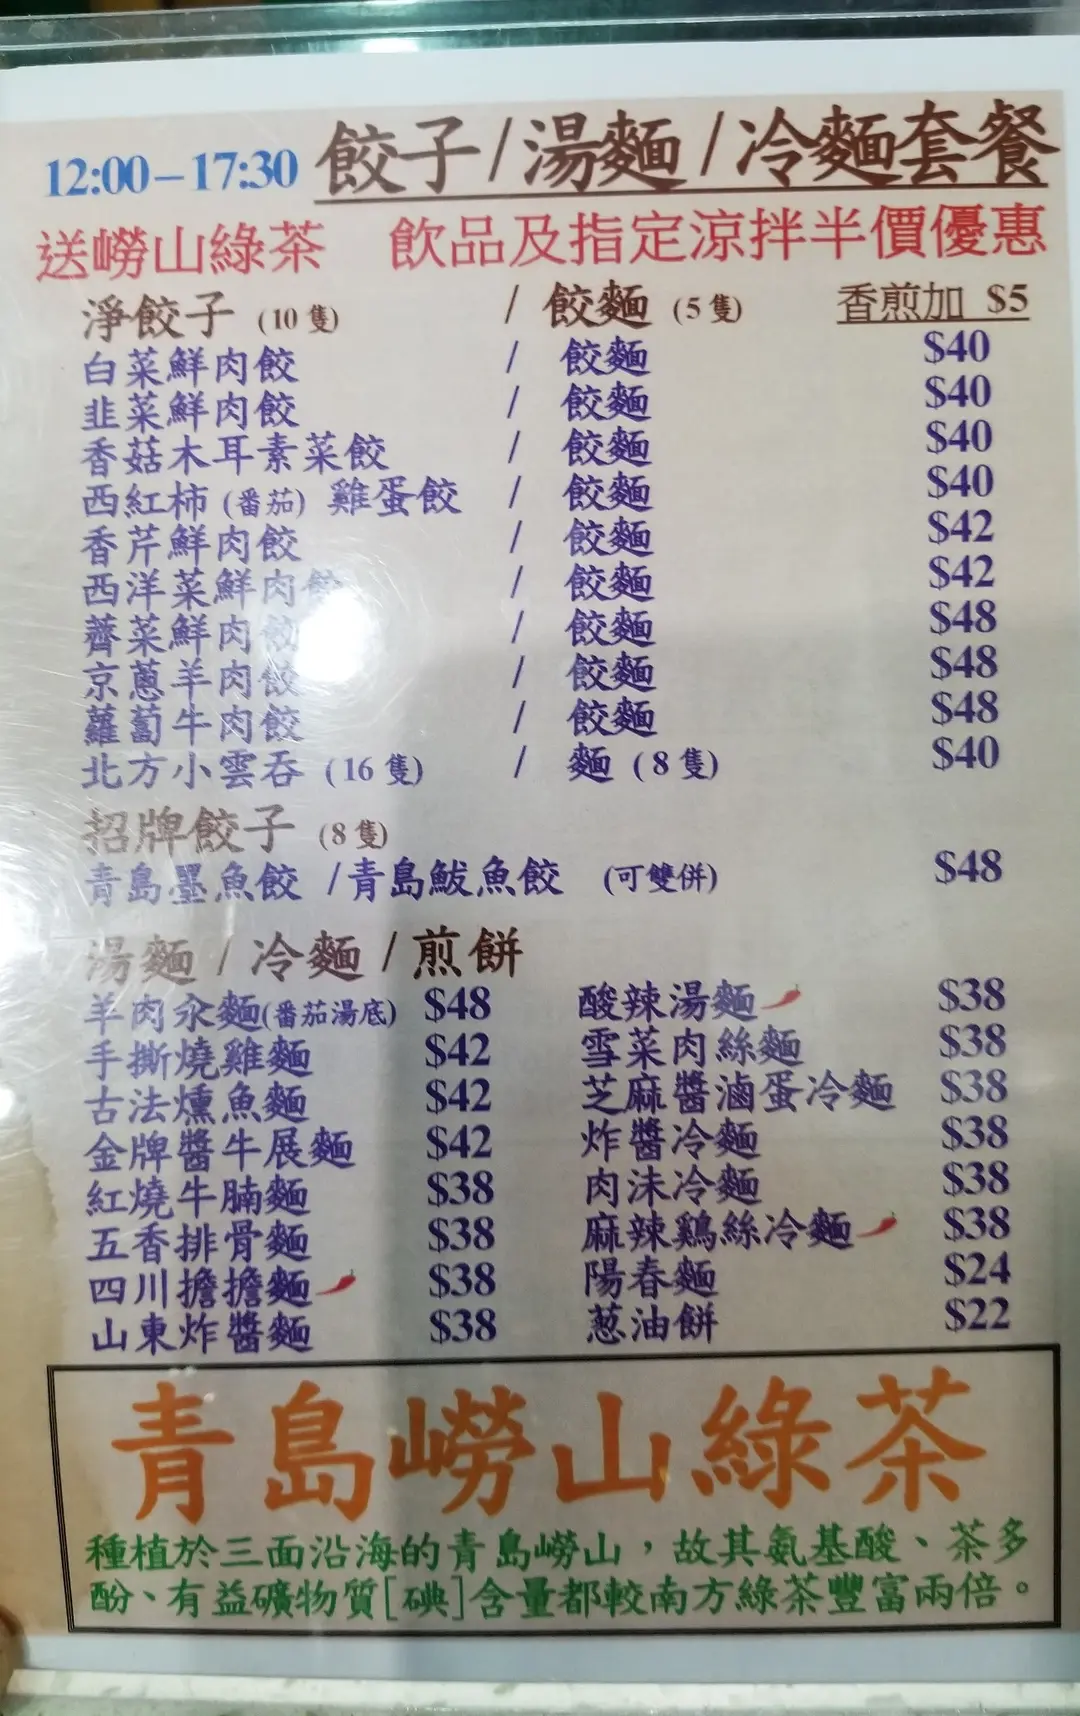 12:00–17:30 餃子/湯麵/冷麵套餐
送嶗山綠茶 飲品及指定涼拌半價優惠
淨餃子 (10隻) / 餃麵 (5隻) 香煎加 $5
白菜鮮肉餃 / 餃麵 $40
韭菜鮮肉餃 / 餃麵 $40
香菇木耳素菜餃 / 餃麵 $40
西紅柿(番茄) 雞蛋餃 / 餃麵 $40
香芹鮮肉餃 / 餃麵 $42
西洋菜鮮肉餃 / 餃麵 $42
薺菜鮮肉餃 / 餃麵 $48
京蔥羊肉餃 / 餃麵 $48
蘿蔔牛肉餃 / 餃麵 $48
北方小雲吞 (16隻) / 麵 (8隻) $40
招牌餃子 (8隻)
青島墨魚餃 /青島鮁魚餃 (可雙併) $48
湯麵 / 冷麵 / 煎餅
羊肉汆麵(番茄湯底) $48 酸辣湯麵 $38
手撕燒雞麵 $42 雪菜肉絲麵 $38
古法燻魚麵 $42 芝麻醬滷蛋冷麵 $38
金牌醬牛展麵 $42 炸醬冷麵 $38
紅燒牛腩麵 $38 肉沫冷麵 $38
五香排骨麵 $38 麻辣鷄絲冷麵 $38
四川擔擔麵 $38 陽春麵 $24
山東炸醬麵 $38 葱油餅 $22
青島嶗山綠茶
種植於三面沿海的青島嶗山，故其氨基酸、茶多
酚、有益礦物質[碘]含量都較南方綠茶豐富兩倍。